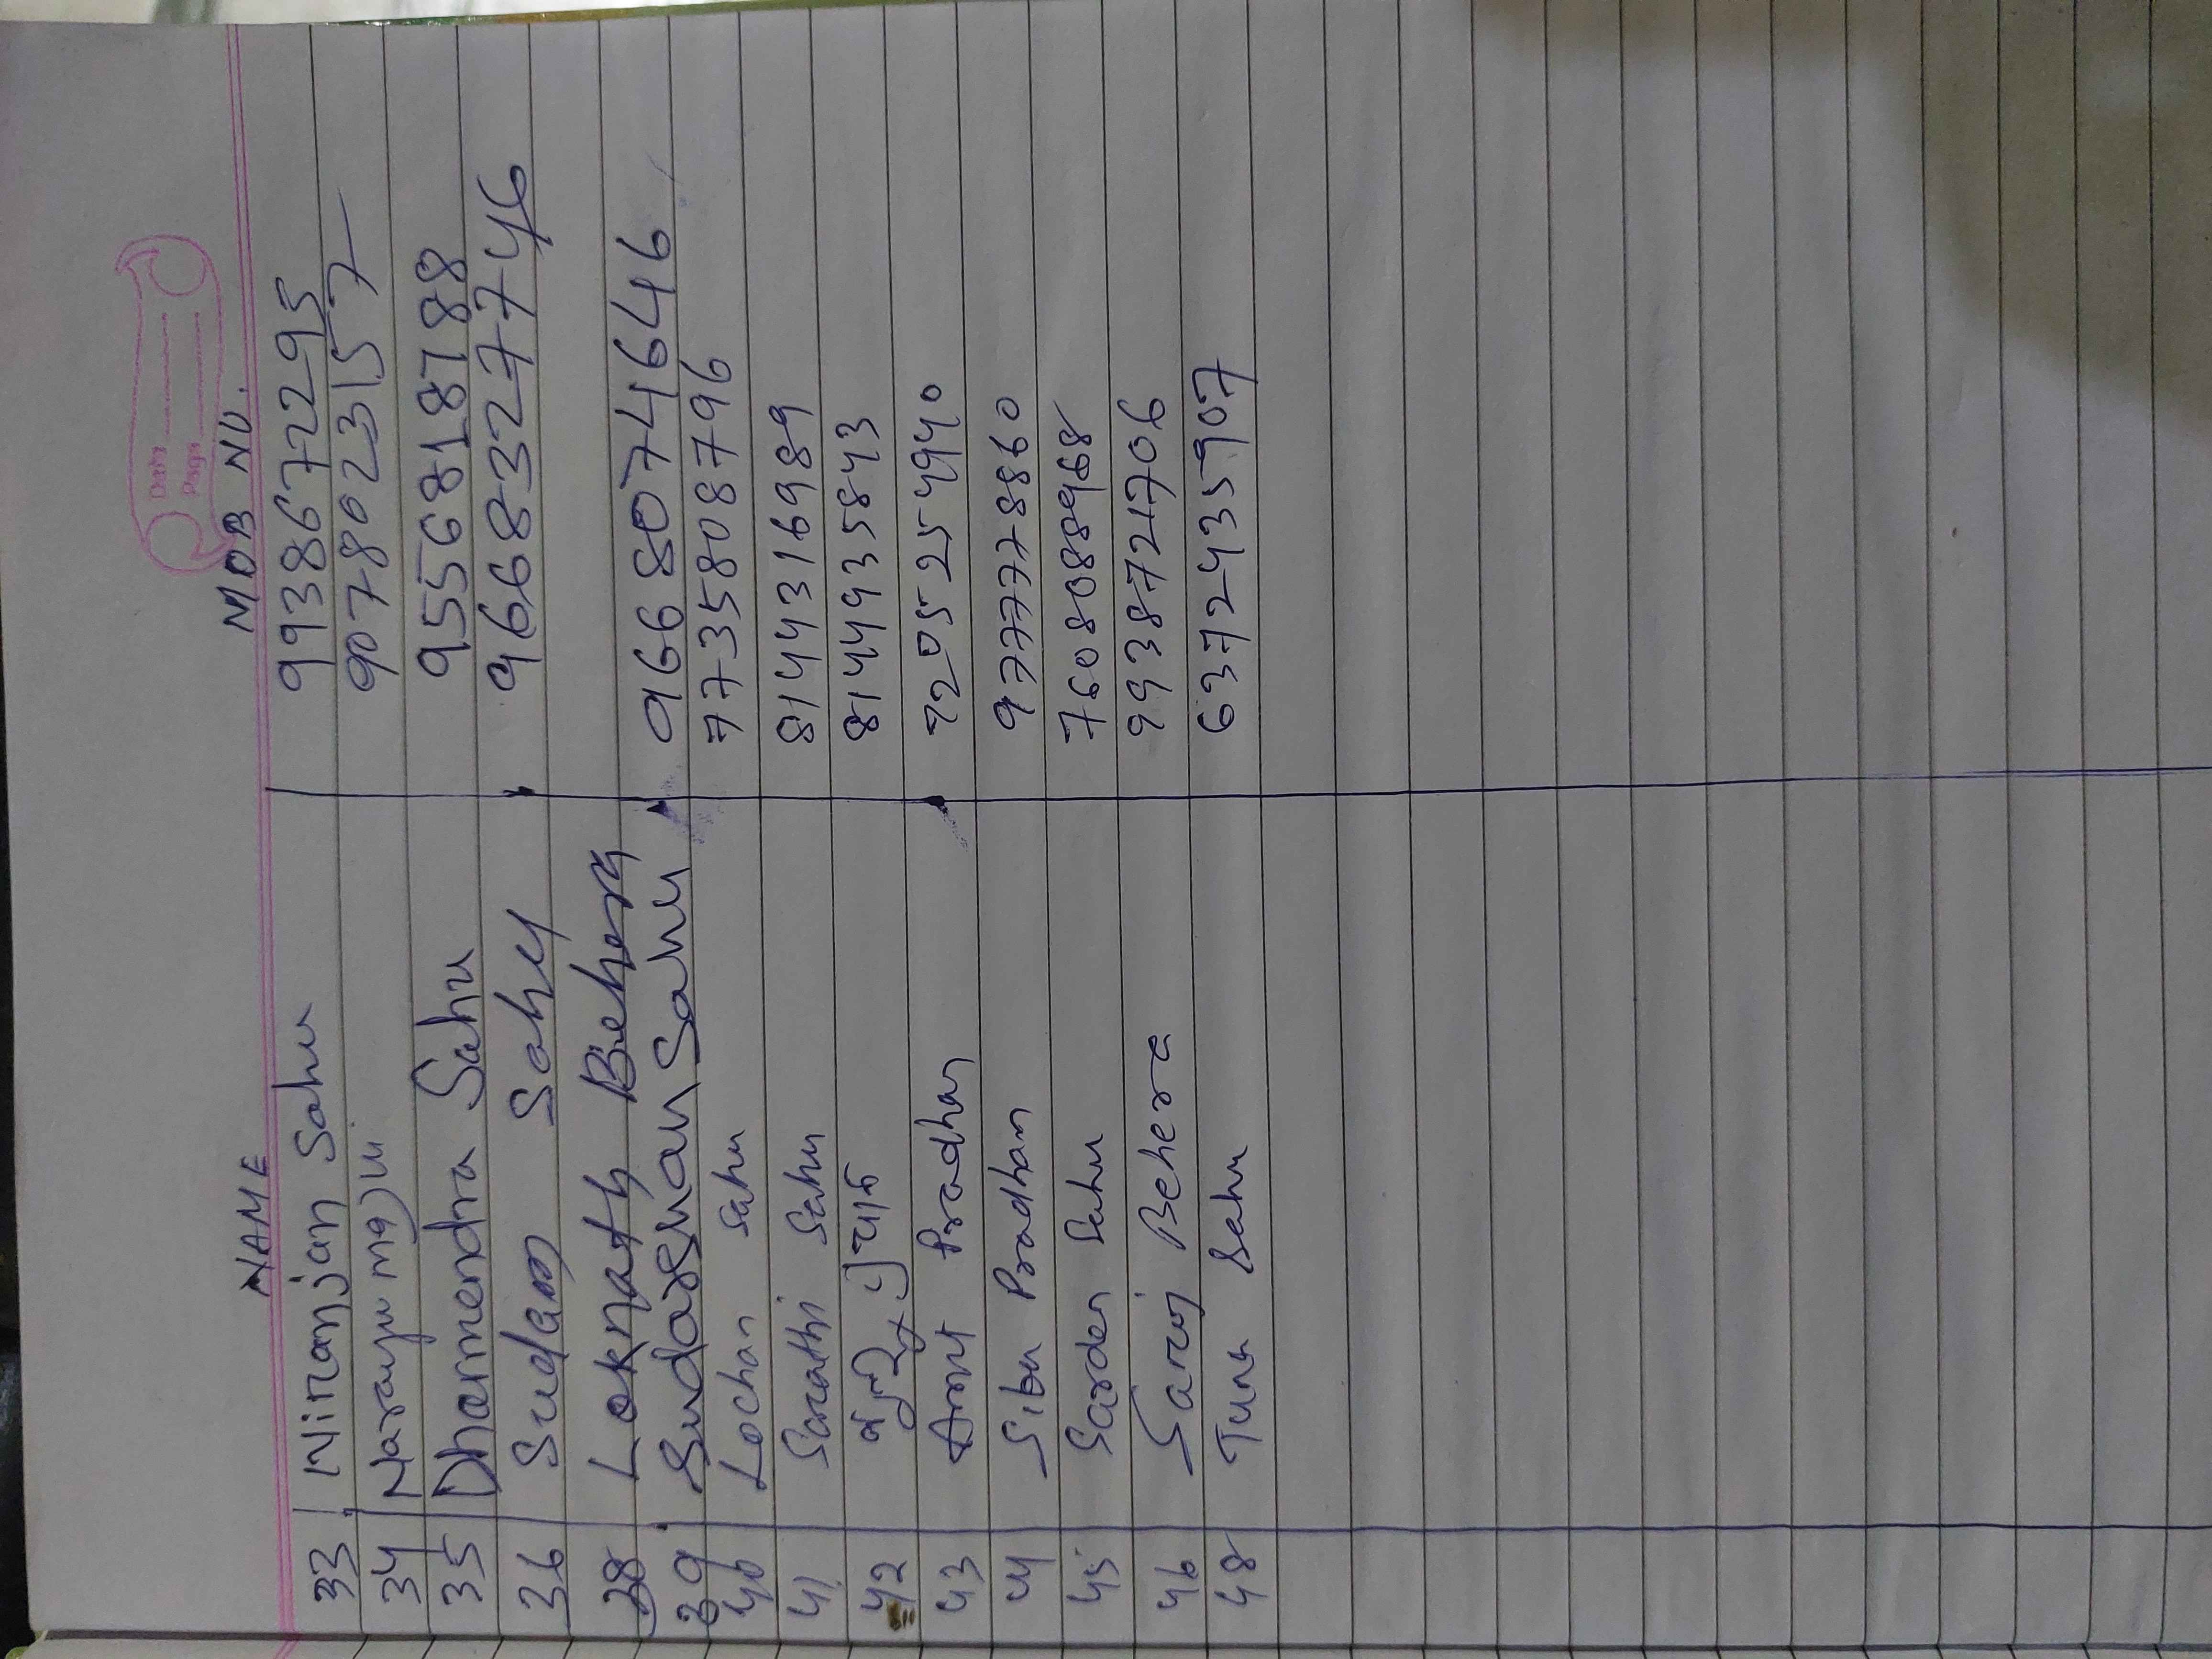 Date
Page
NAME MOB NO.
33 Niranjan Sahu 9938677295
34 Narayu maji 9078023157
35 Dharmendra Sahu 9556818788
36 Sudam Sahu 9668327746
38 Loknath Behera
39 Sudarshan Sahu 9668074646
40 Lochan Sahu 7735808796
41 Sarathi Sahu 8144316989
42 8144935843
43 Amit Pradhan 7205254940
44 Sibu Pradhan 9777778860
45 Sarden Sahu 7608088968
46 Saroj Behera 9938721706
48 Tuna Sahu 6372435907